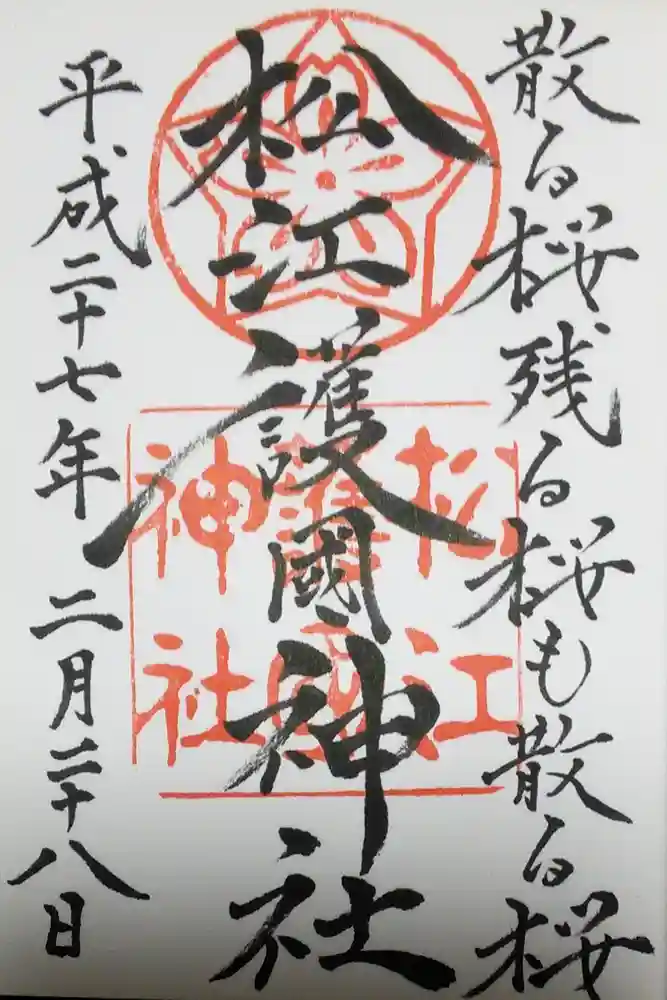 散る桜残る桜も散る桜
松江護國神社
平成二十七年二月二十八日
松江
護國
神社